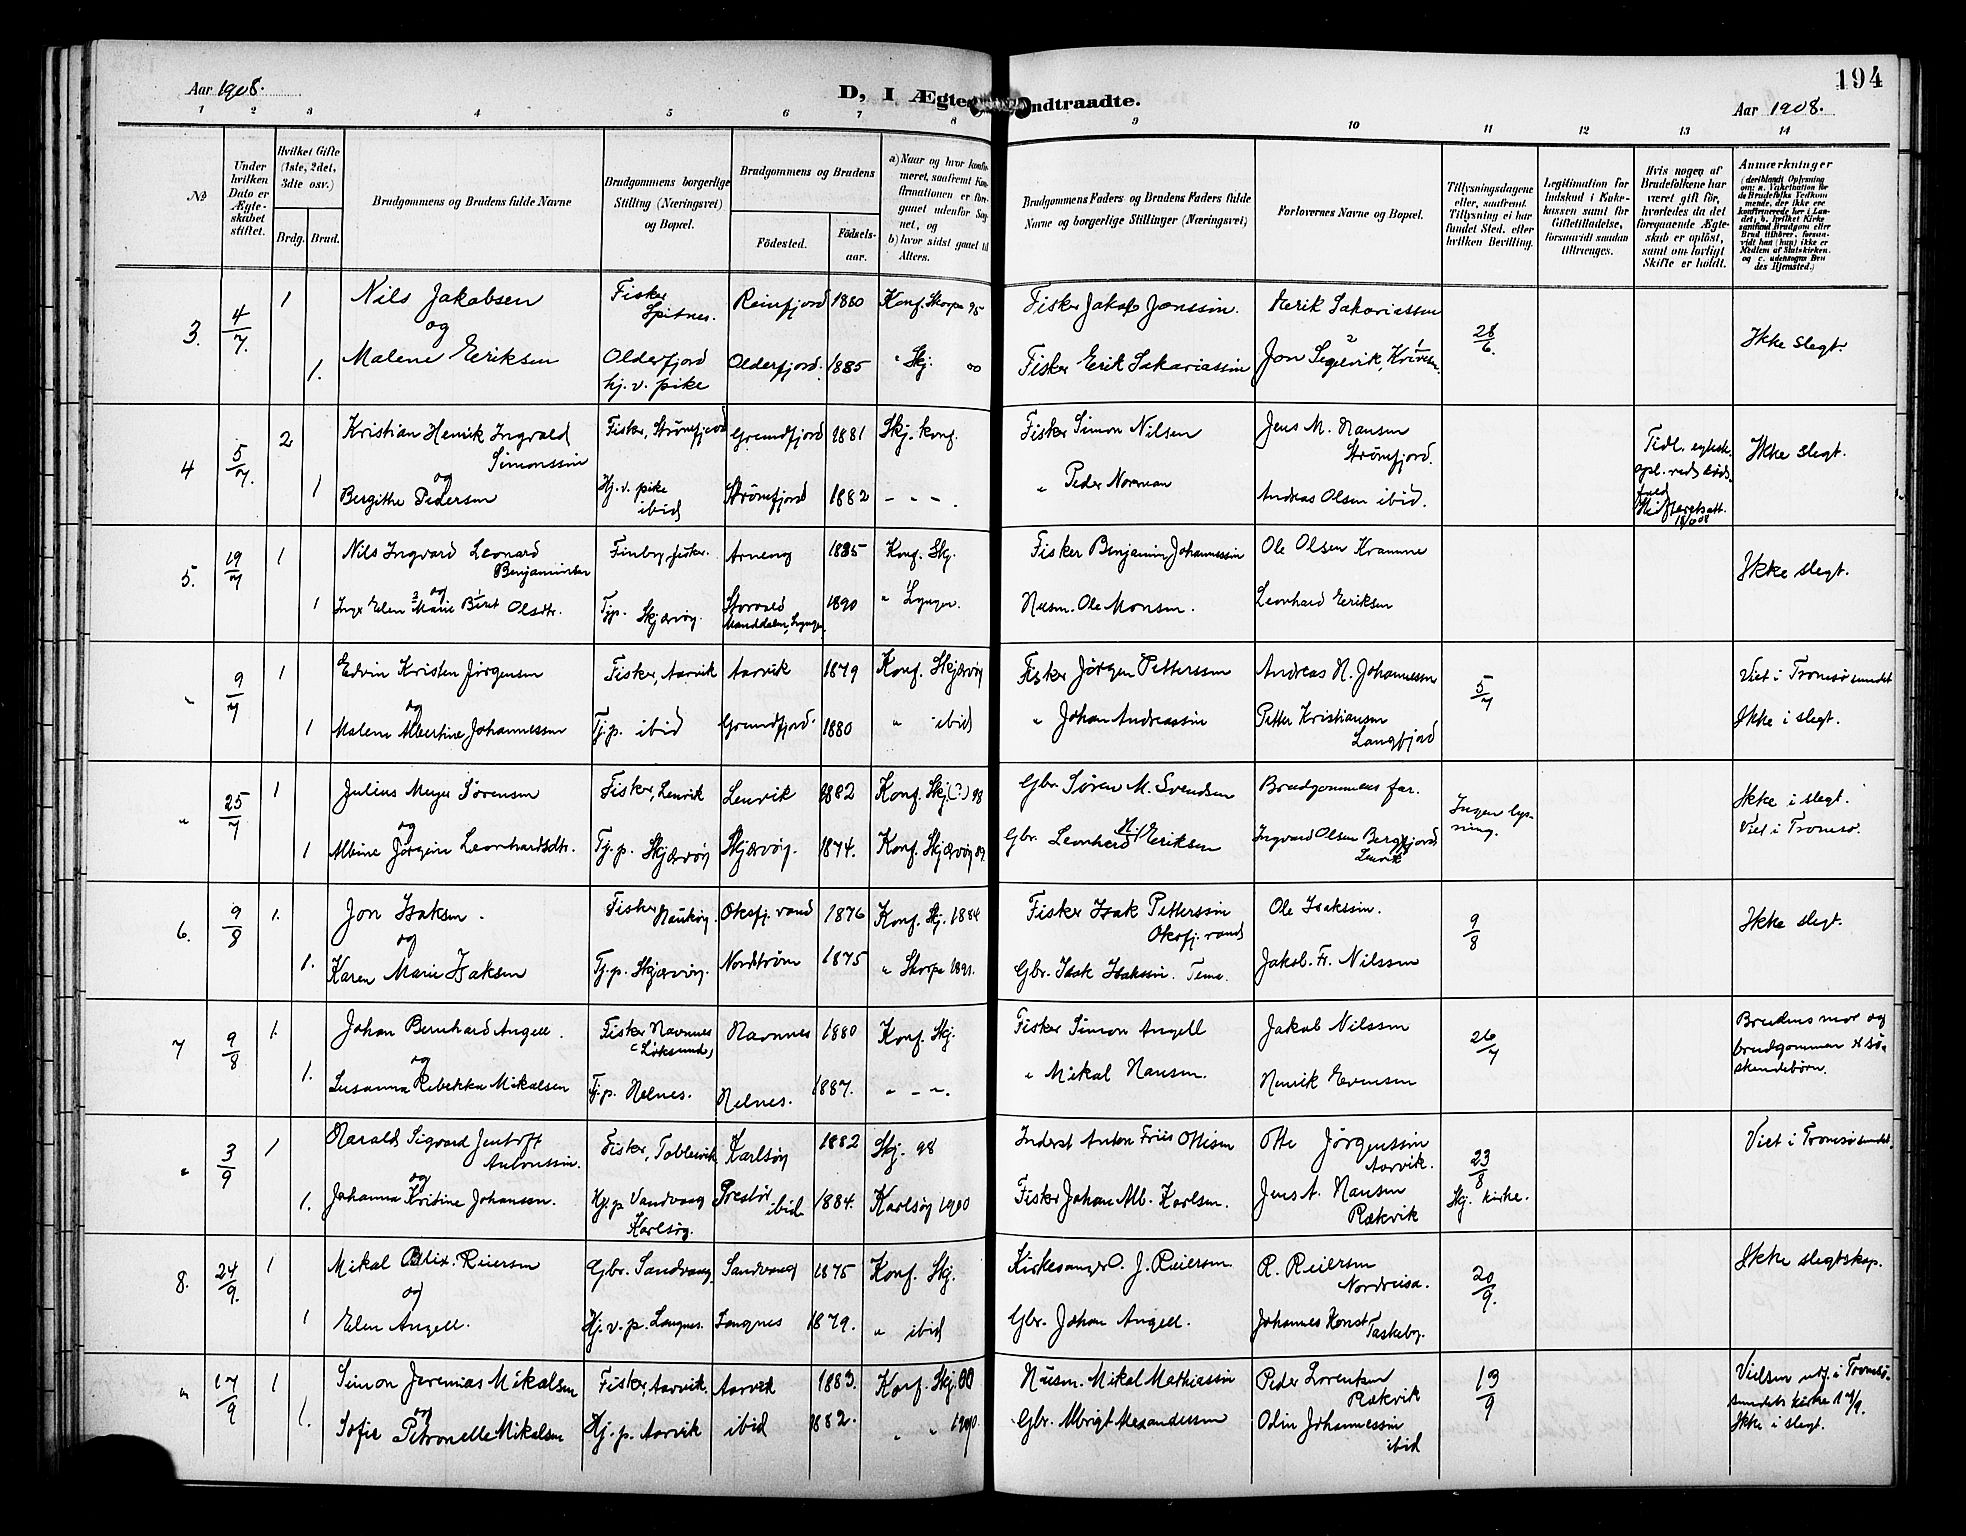 194
Aar 1908.
D, I Ægte
ndtraadte.
Aar 1908.
1 2 3 4 5 6 7 8 9 10 11 12 13 14
No
Under hvilken Dato er Ægteskabet stiftet.
Hvilket Gifte (1ste, 2det, 3die osv.)
Brdg. Brud.
Brudgommens og Brudens fulde Navne
Brudgommens borgerlige Stilling (Næringsvei) og Bopæl.
Brudgommens og Brudens
Fødested. Fødselsaar.
a) Naar og hvor konfirmeret, saafremt Konfirmationen er foregaaet udenfor Sognet, og
b) hvor sidst gaaet til Alters.
Brudgommens Faders og Brudens Faders fulde Navne og borgerlige Stillinger (Næringsvei)
Forlovernes Navne og Bopæl.
Tillysningsdagene eller, saafremt Tillysning ei har fundet Sted, efter hvilken Bevilling.
Legitimation for Indskud i Enkekassen samt for Giftetilladelse, forsaavidt saadan tiltrænges.
Hvis nogen af Brudefolkene har været gift før, hvorledes da det foregaaende Ægteskab er opløst, samt om lovligt Skifte er holdt.
Anmærkninger
3. 4/7. 1 Nils Jakobsen Fisker Spitnes. Reinfjord 1880 Konf. Skorpa 95 Fisker Jakob Jonssen. Eerik Sakariassen 28/6. Ikke slegt.
og
1. Malene Eeriksen Olderfjord hj. v. pike Olderfjord. 1885 " Skj. 00 Fisker Erik Sakariassen Jon Segelvik,
4 5/7. 2 Kristian Henrik Ingvald Simonssen Fisker, Strømfjord Grundfjord 1881 Skj. konf. Fisker Simon Nilsen Jens M. Hansen Strømfjord. Ikke slegt.
og
1 Bergithe Pedersen Hj. v. pike ibid Strømfjord 1882 - - - . " Peder Norman Andreas Olsen ibid.
5. 19/7 1 Nils Ingvard Leonard Benjaminsen Arnøng 1885 Konf. Skj. Fisker Benjamin Johannessen Ole Olsen Ikke slegt.
og
1 Inga Elen Marie Berit Olsdtr. Tjp. Skjærvøy. Manddalen, Lyngen 1890 " Lyngen. Husm. Ole Monsen. Leonhard Eeriksen
" 9/7 1 Edvin Kristen Jørgensen Fisker, Aarvik Aarvik 1879 Konf. Skjærvøy Fisker Jørgen Pettersen Andreas H. Johannessen 5/7 Viet i Tromsøsundet
og
1 Malene Albertine Johannessen Tj.p. ibid Grundfjord. 1880 " ibid " Johan Andreassen Petter Kristiansen Langfjord Ikke i slegt.
" 25/7 1 Julius Meyer Sørensen Fisker, Lenvik Lenvik 1882 Konf. Skj. (?) 98 Gbr. Søren M. Svendsen Brudgommens far. Ingen lysning. Ikke i slegt.
Viet i Tromsø.
og
1 Albine Jørgine Leonhardsdtr. Tj.p. Skjærvøy Skjærvøy. 1874. Konf. Skjærvøy 89 Gbr. Leonherd N. Eeriksen Ingvard Olsen Bergfjord Lenvik
6. 9/8 1. Jon Isaksen. Fisker Hauköy. Oksfj. vand 1876 Konf. Skj. 1884 Fisker Isak Petterssen Oksfj. vand Ole Isakssen. 9/8 Ikke slegt.
og
1. Karen Marie Isaksen Tj.p. Skjærvøy. Nordstrøm 1875 " Skorpa 1891. Gbr. Isak Isakssen. Jakob. Fr. Nilssen
7 9/8 1. Johan Bernhard Angell. Fisker Havnnes (Løksund) Havnnes 1880 Konf. Skj. Fisker Simon Angell Jakob Nilssen 26/7 Brudens mor og brudgommen er søskendebørn.
og
1. Susanna Rebekka Mikalsen Tj.p. Helnes. Helnes. 1887. " - ". " Mikal Hansen. Henrik Evensen
" 3/9 1 Harald Sigvard Jentoft Antonssen. Fisker, Karlsøy 1882 Skj. 98 Inderst Anton Friis Ottesen Otte Jørgenssen Aarvik. 23/8 Skj. kirke. Viet i Tromsøsundet.
og
1. Johanna Kristine Johansen. Hj.p Vandvaag Karlsøy. ibid 1884. Karlsøy 1900 Fisker Johan Alb. Karlsen. Jens A. Hansen Rækvik
8. 24/9. 1 Mikal Alix. Reiersen Gbr. Sandvaag Sandvaag 1875 Konf. Skj. Kirkesanger O. J. Reiersen. R. Reiersen Nordreisa. 20/9. Ikke slegtskap.
og
1 Elen Angell. Hj. v. p. Langnes. Langnes 1879. " ibid Gbr. Johan Angell. Johannes Horst Taskeby.
" 17/9 1 Simon Jeremias Mikalsen Fisker Aarvik. Aarvik 1883. Konf. Skj. 00 Husm. Mikal Mathiassen Peder Lorentsen Rækvik 13/9 Vielsen utf. i Tromsøsundets kirke 17/9. Ikke i slegt.
og
1. Sofie Petronelle Mikalsen Hj.p. Aarvik ibid 1882. " " 1900. Gbr. Albrigt Alexandersen Odin Johannessen ibid